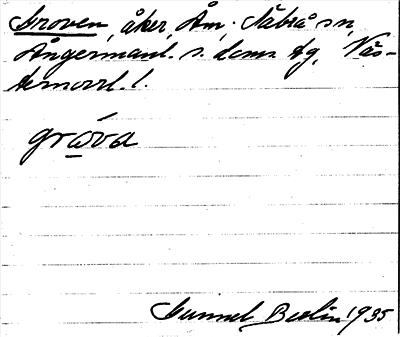 Groven, åker, Åm, Säbrå sn,
Ångermanl. s. doms. tg, Väs-
ternorrl. l.
gròva
Gunnel Beslin 1935